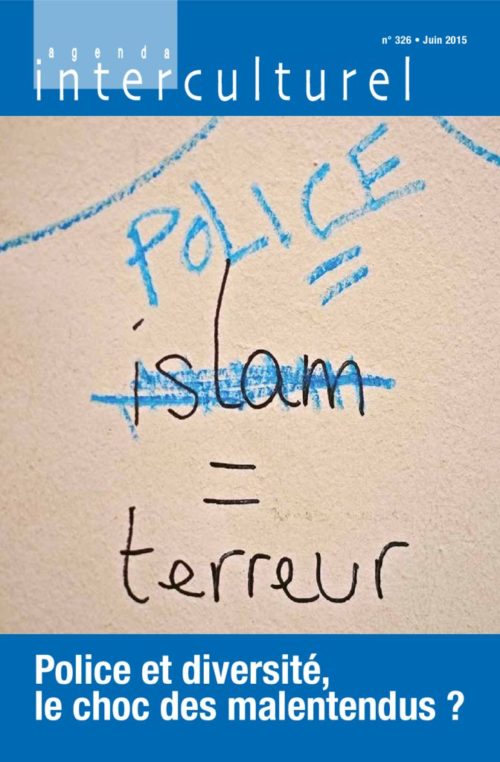 agenda
interculturel
n° 326 • Juin 2015
POLICE
=
islam
=
terreur
Police et diversité,
le choc des malentendus ?